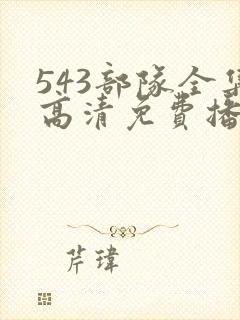 543部隊全集
高清免費播
芹瑋